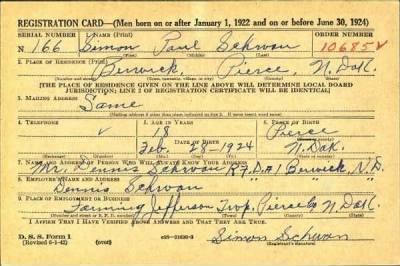 REGISTRATION CARD—(Men born on or after January 1, 1922 and on or before June 30, 1924)
SERIAL NUMBER 1. NAME (Print) ORDER NUMBER
N 166 Simon Paul Schwan 10685
(First) (Middle) (Last)
2. PLACE OF RESIDENCE (Print)
Berwick, Pierce, N. Dak.
(Number and street) (Town, township, village, or city) (County) (State)
[THE PLACE OF RESIDENCE GIVEN ON THE LINE ABOVE WILL DETERMINE LOCAL BOARD
JURISDICTION; LINE 2 OF REGISTRATION CERTIFICATE WILL BE IDENTICAL]
3. MAILING ADDRESS
Same
(Mailing address if other than place indicated on line 2. If same insert word same)
4. TELEPHONE 5. AGE IN YEARS 6. PLACE OF BIRTH
18 Pierce
DATE OF BIRTH
Feb. 28-1924 N. Dak.
7. NAME AND ADDRESS OF PERSON WHO WILL ALWAYS KNOW YOUR ADDRESS
Mr. Dennis Schwan R.F.D. #1 Berwick, N.D.
8. EMPLOYER'S NAME AND ADDRESS
Dennis Schwan " " " "
9. PLACE OF EMPLOYMENT OR BUSINESS
Farming Jefferson Twp. Pierce N. Dak.
(Number and street or R. F. D. number) (Town) (County) (State)
I AFFIRM THAT I HAVE VERIFIED ABOVE ANSWERS AND THAT THEY ARE TRUE.
D. S. S. Form 1
(Revised 6-1-42) (over) Simon Schwan
(Registrant's signature)